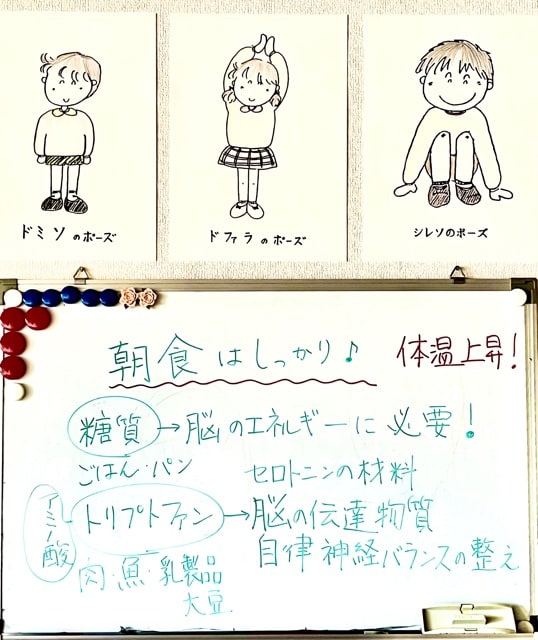 ドミソのポーズ
ドファラのポーズ
シレソのポーズ
朝食はしっかり♪
体温上昇!
糖質→脳のエネルギーに必要!
ごはん・パン
セロトニンの材料
アミノ酸
トリプトファン→脳の伝達物質
自律神経バランスの整え
肉・魚・乳製品
大豆